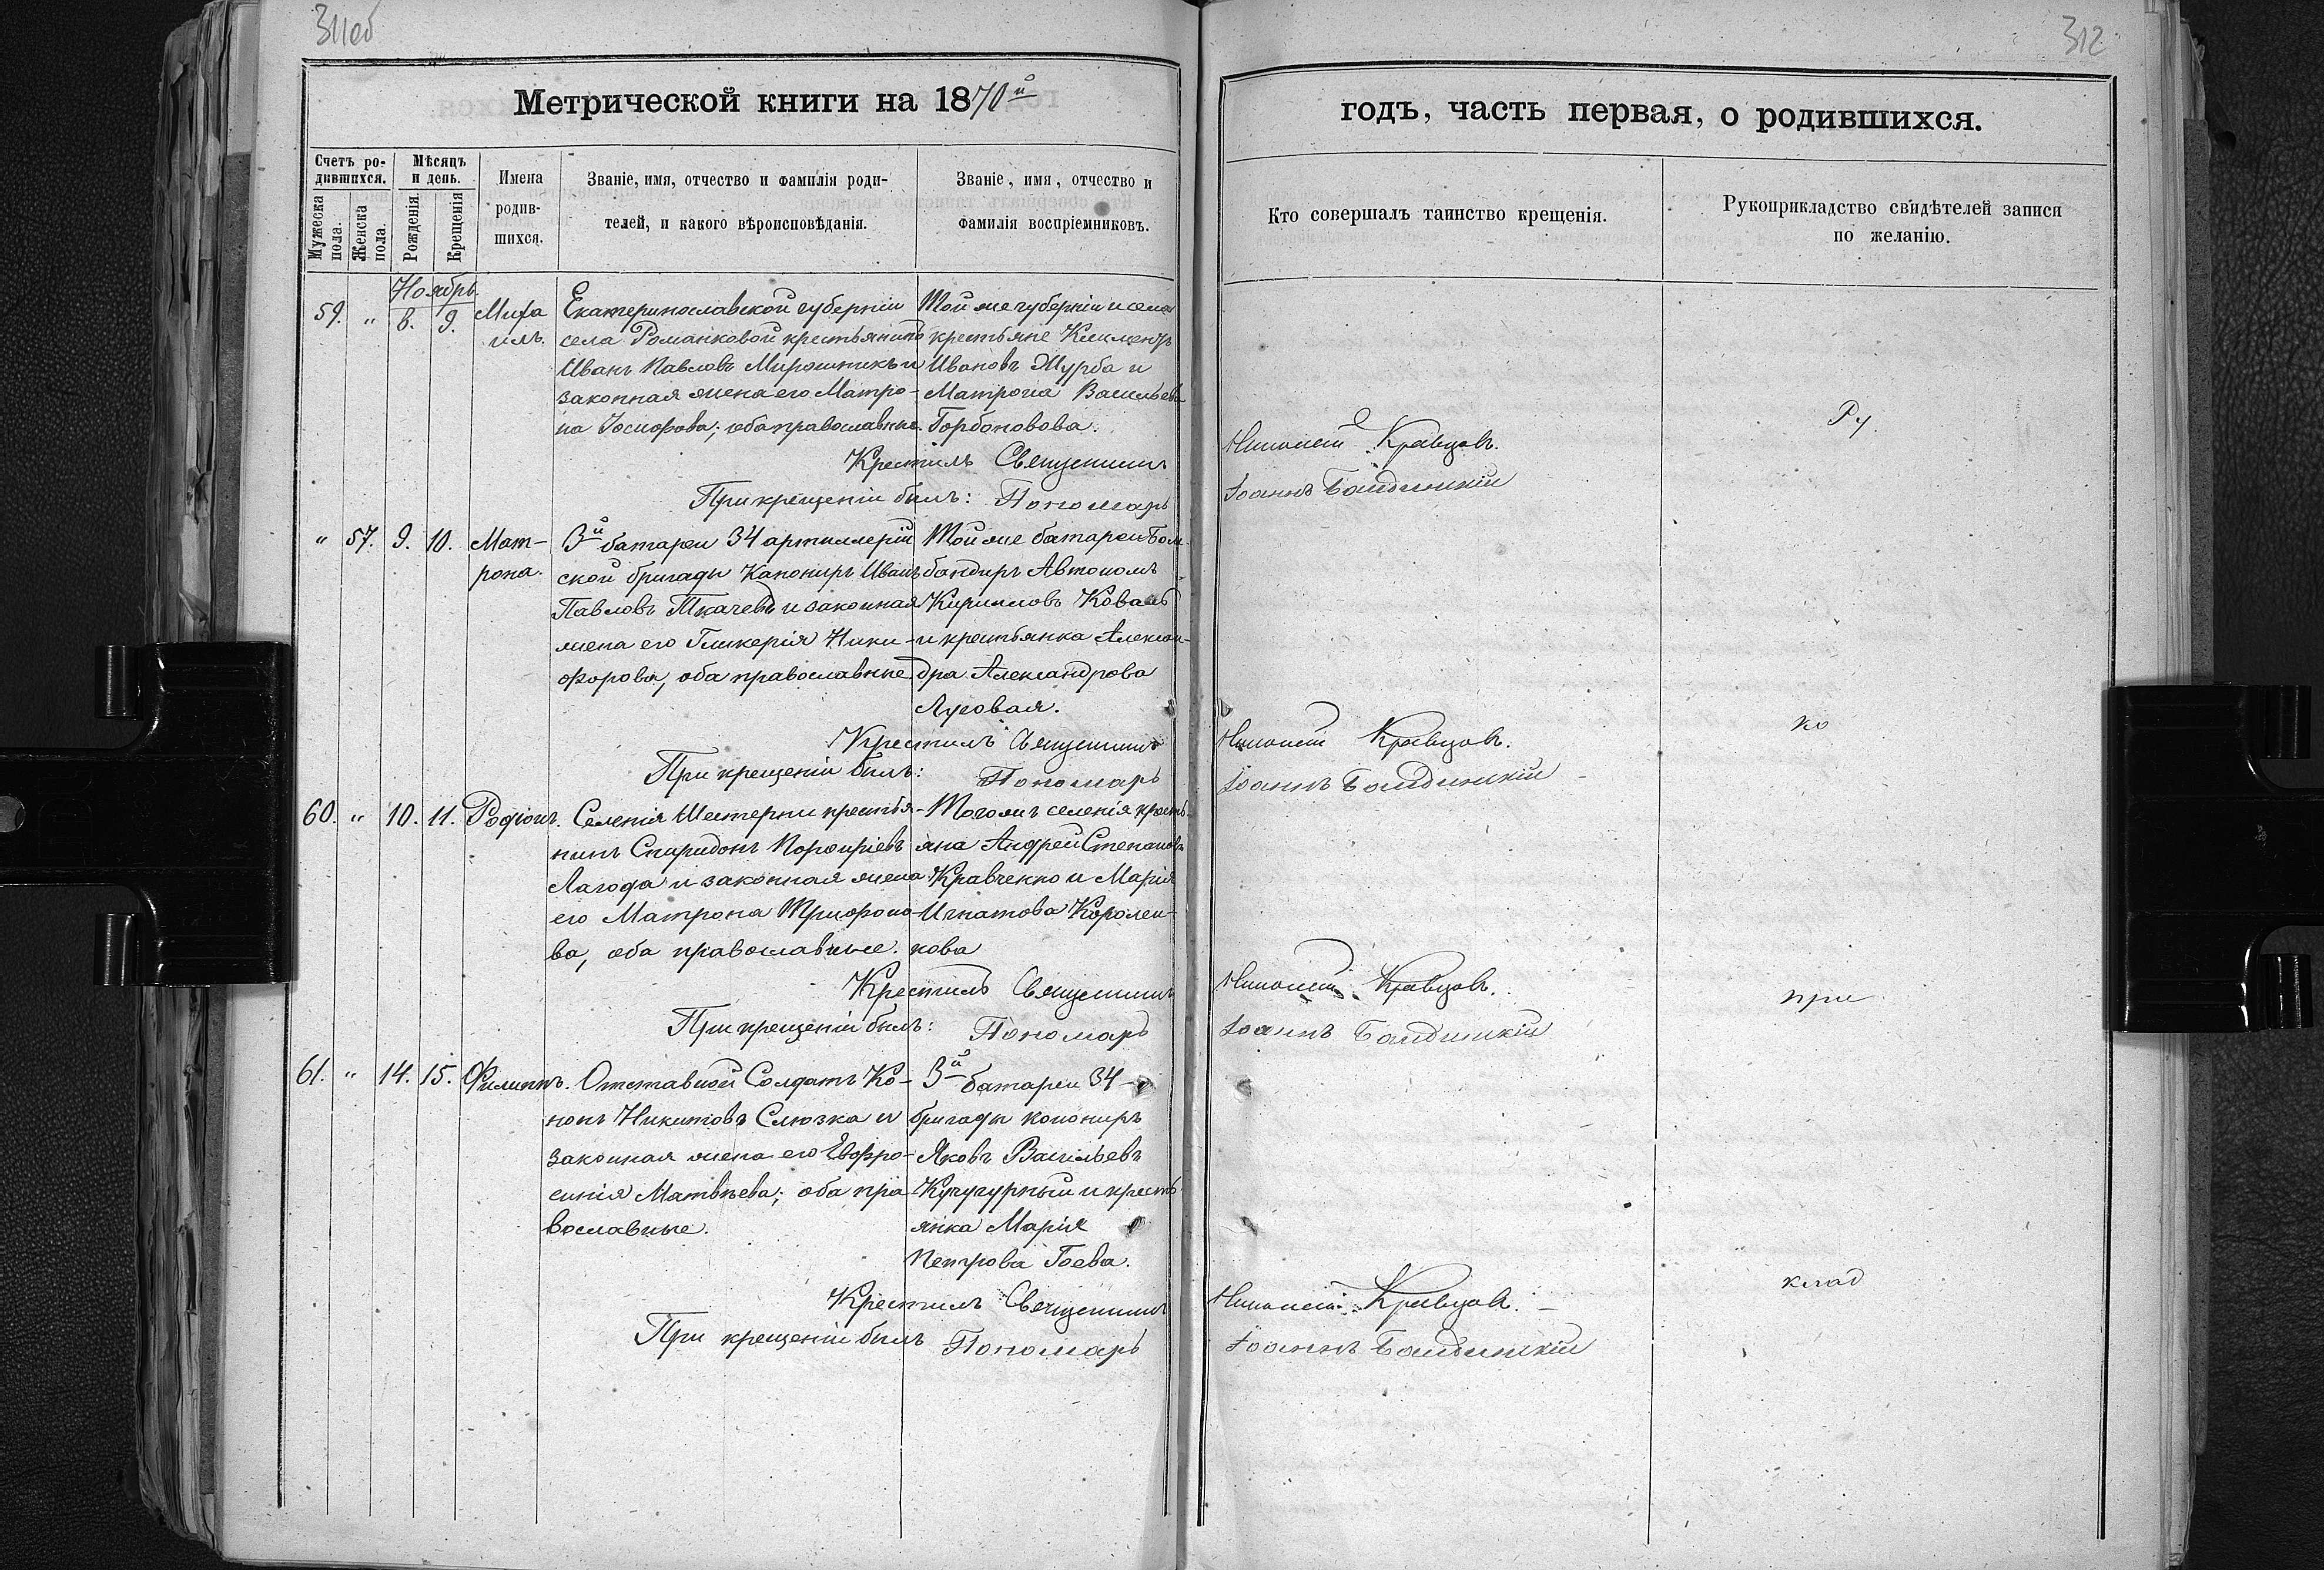 311об
312
Метрической книги на 1870й
годъ, часть первая, о родившихся.
Счетъ родившихся.
Мужеска пола.
Женска пола.
Мѣсяцъ и день.
Рожденія.
Крещенія
Имена родившихся.
Званіе, имя, отчество и фамилія родителей, и какого вѣроисповѣданія.
Званіе, имя, отчество и фамилія воспріемниковъ.
Кто совершалъ таинство крещенія.
Рукоприкладство свидѣтелей записи по желанію.
Ноябрь.
59. " 8. 9. Миха Екатеринославской губерніи Той же губерніи и села
илъ. села Романковой крестьянинъ крестьяне Климентъ
Иванъ Павловъ Мирошникъ и Ивановъ Журба и
законная жена его Матро- Матрона Васильева
на Іосифова; оба православные. Горбоновова.
Крестилъ Священникъ Кравцовъ. Ру
При крещеніи былъ: Пономарь Іоаннъ
" 57. 9. 10. Мат- 3й батареи 34 артиллерій Той же батареи Бом-
рона. ской бригады Канониръ Иванъ бандиръ Автономъ
Павловъ Ткачевъ и законная Кирилловъ Коваль
жена его Гликерія Ники- и крестьянка Алексан-
форова, оба православные дра Александрова
Луговая.
Крестилъ Священникъ Кравцовъ. ко
При крещеніи былъ: Пономарь Іоаннъ
60. " 10. 11. Родіонъ. Селенія Шестерни крестья- Тогожъ селенія кресть-
нинъ Спиридонъ Порфиріевъ яна Андрей Степановъ
Лагода и законная жена Кравченко и Марія
его Матрона Трифоно- Игнатова Королен-
ва, оба православные. кова
Крестилъ Священникъ Кравцовъ. при
При крещеніи былъ: Пономарь Іоаннъ
61. " 14. 15. Филиппъ. Отставной Солдатъ Ко- 3й батареи 34-
нонъ Никитовъ Слюзка и бригады конониръ
законная жена его Евфро- Яковъ Васильевъ
синія Матвѣева; оба пра- Кучугурный и кресть-
вославные. янка Марія
Петрова Гоева.
Крестилъ Священникъ Кравцовъ. клад
При крещеніи былъ Пономарь Іоаннъ